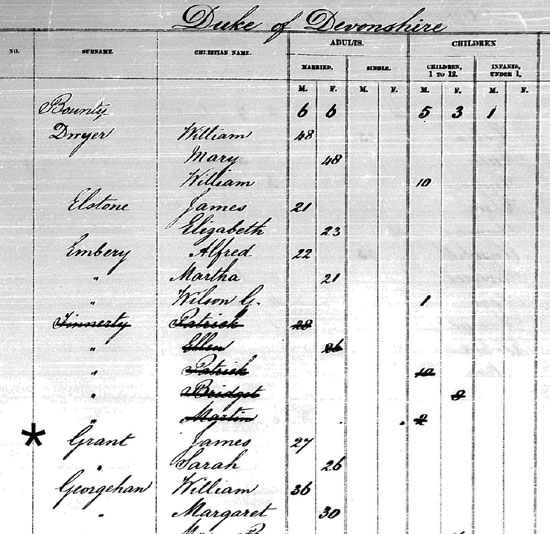 Duke of Devonshire
NO. SURNAME. CHRISTIAN NAME. ADULTS. CHILDREN
MARRIED. SINGLE. CHILDREN, 1 TO 12. INFANTS, UNDER 1.
M. F. M. F. M. F. M. F.
Bounty 6 6 5 3 1
Dwyer William 48
Mary 48
William 10
Elstone James 21
Elizabeth 23
Embery Alfred 22
" Martha 21
" Wilson G. 1
Finnerty Patrick 28
" Ellen 26
" Patrick
" Bridget 8
" Martin 2
* Grant James 27
" Sarah 26
Georgehan William 36
" Margaret 30